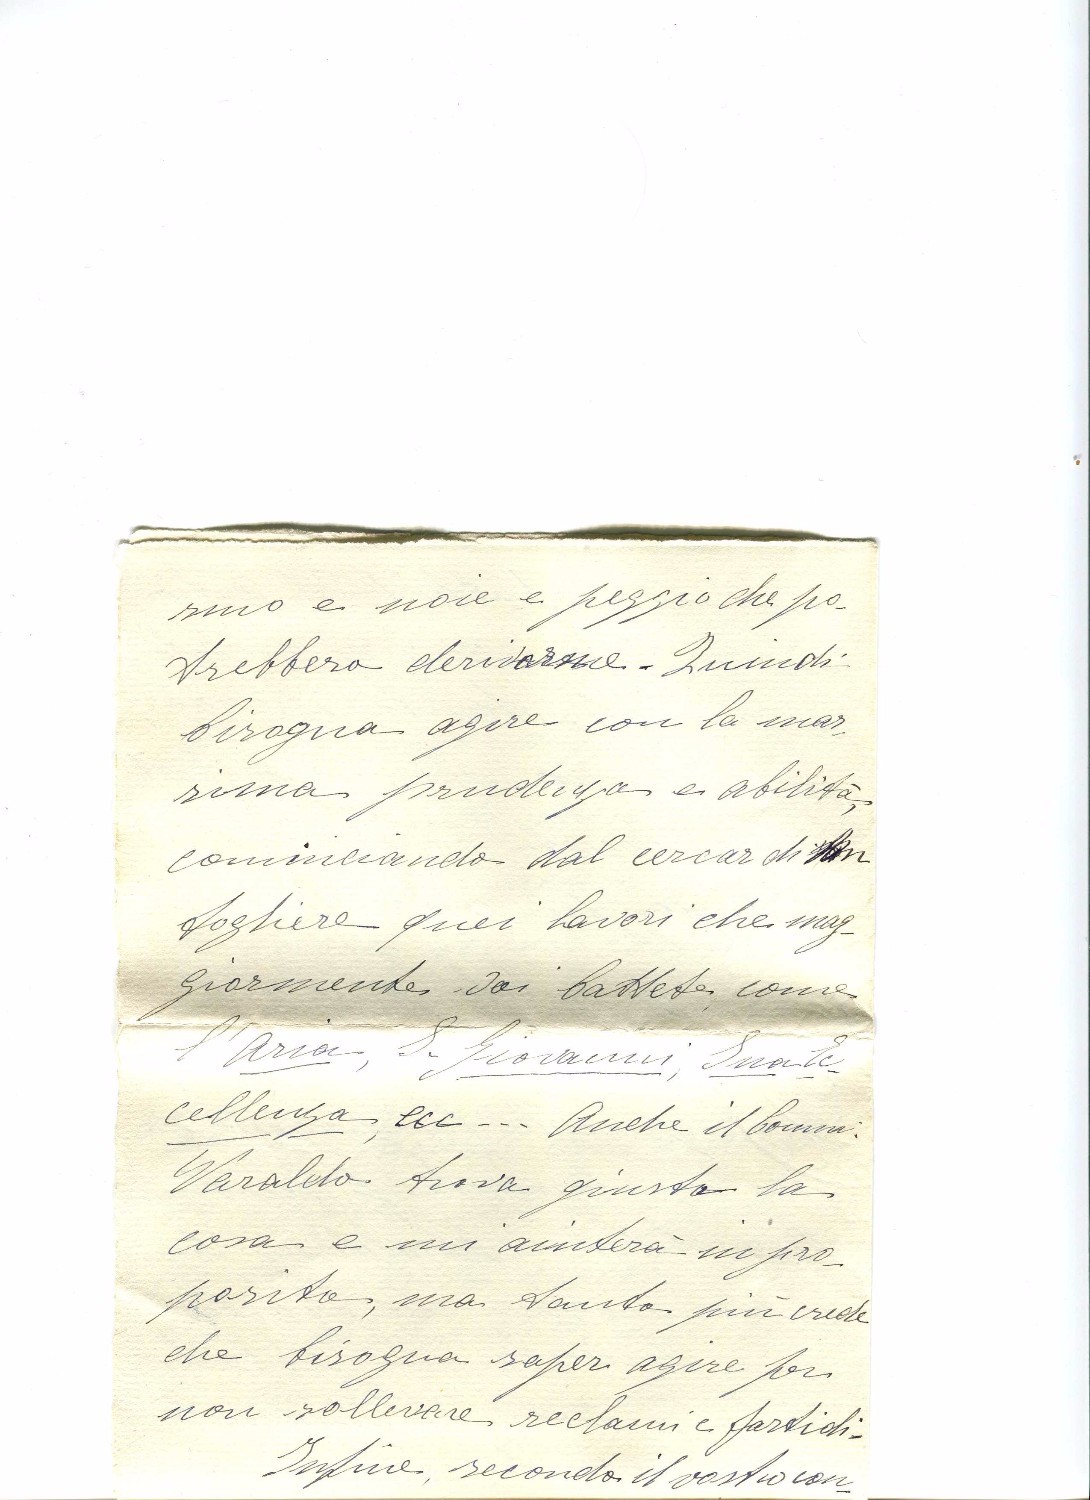 smo e noie e peggio che po-
trebbero derivarne. Quindi
bisogna agire con la mas-
sima prudenza e abilità,
cominciando dal cercar di
togliere quei lavori che mag-
giormente voi battete, come
l'Aria, S. Giovanni, Sua Ec-
cellenza, ecc --- Anche il Comm.
Varaldo trova giusta la
cosa e mi aiuterà in pro-
posito, ma tanto più crede
che bisogna saper agire per
non sollevare reclami e fastidi.
Infine, secondo il vostro con-